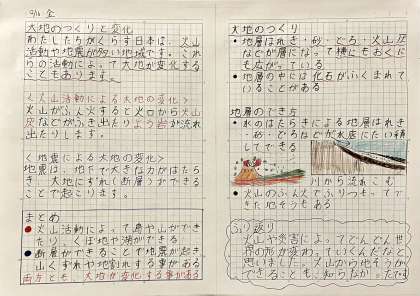 9/16 金
大地のつくりと変化
わたしたちがくらす日本は、火山
活動や地震が多い地域です。これ
らの活動によって大地が変化する
こともあります。
<火山活動による大地の変化>
火山がふん火すると火口から火山
灰などがふき出たりよう岩が流れ
出たりします。
<地震による大地の変化>
地震は、地下で大きな力がはたら
き、大地にずれ(断層)ができる
ことで起こります。
まとめ
●火山活動によって島や山ができ
たり、くぼ地や湖ができる
●断層ができることで地震が起き
山くずれや地割れする事がある
両方とも、大地が変化する事がある
大地のつくり
●地層はれき・砂・どろ・火山灰
などが層になって横にもおくに
も広がっている
●地層の中には化石がふくまれて
いることがある
地層のでき方
●水のはたらきによる地層はれき
・砂・どろなどが水底にたい積
してできる
川から流れこむ
●火山のふん火でふりつもってで
きた地そうもある
ふり返り
火山や災害によってどんどん世
界の形が変わっていくんだなと
思いました。火山から地そうが
できることも、知らなかったです